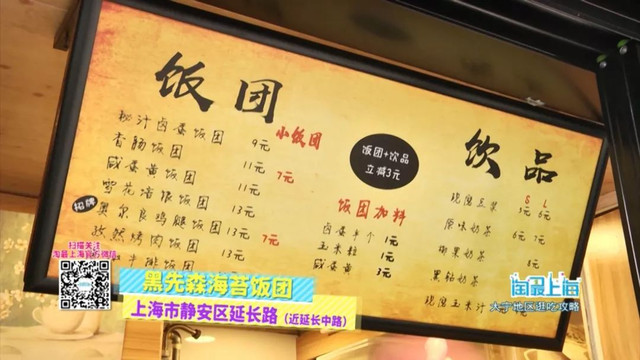 饭团
小饭团
秘汁卤蛋饭团 9元
香肠饭团 11元
咸蛋黄饭团 11元 7元
雪花猪排饭团 13元
招牌
奥尔良鸡腿饭团 13元
孜然烤肉饭团 13元 7元
牛排饭团
饭团+饮品
立减3元
饭团加料
卤蛋半个 1元
玉米粒 1元
咸蛋黄 3元
饮品
S L
现磨豆浆 3元 6元
原味奶茶 7元
椰果奶茶
黑糖奶茶
现磨玉米汁
扫描关注
淘最上海官方微信
黑先森海苔饭团
上海市静安区延长路(近延长中路)
淘最上海
大宁地区逛吃攻略